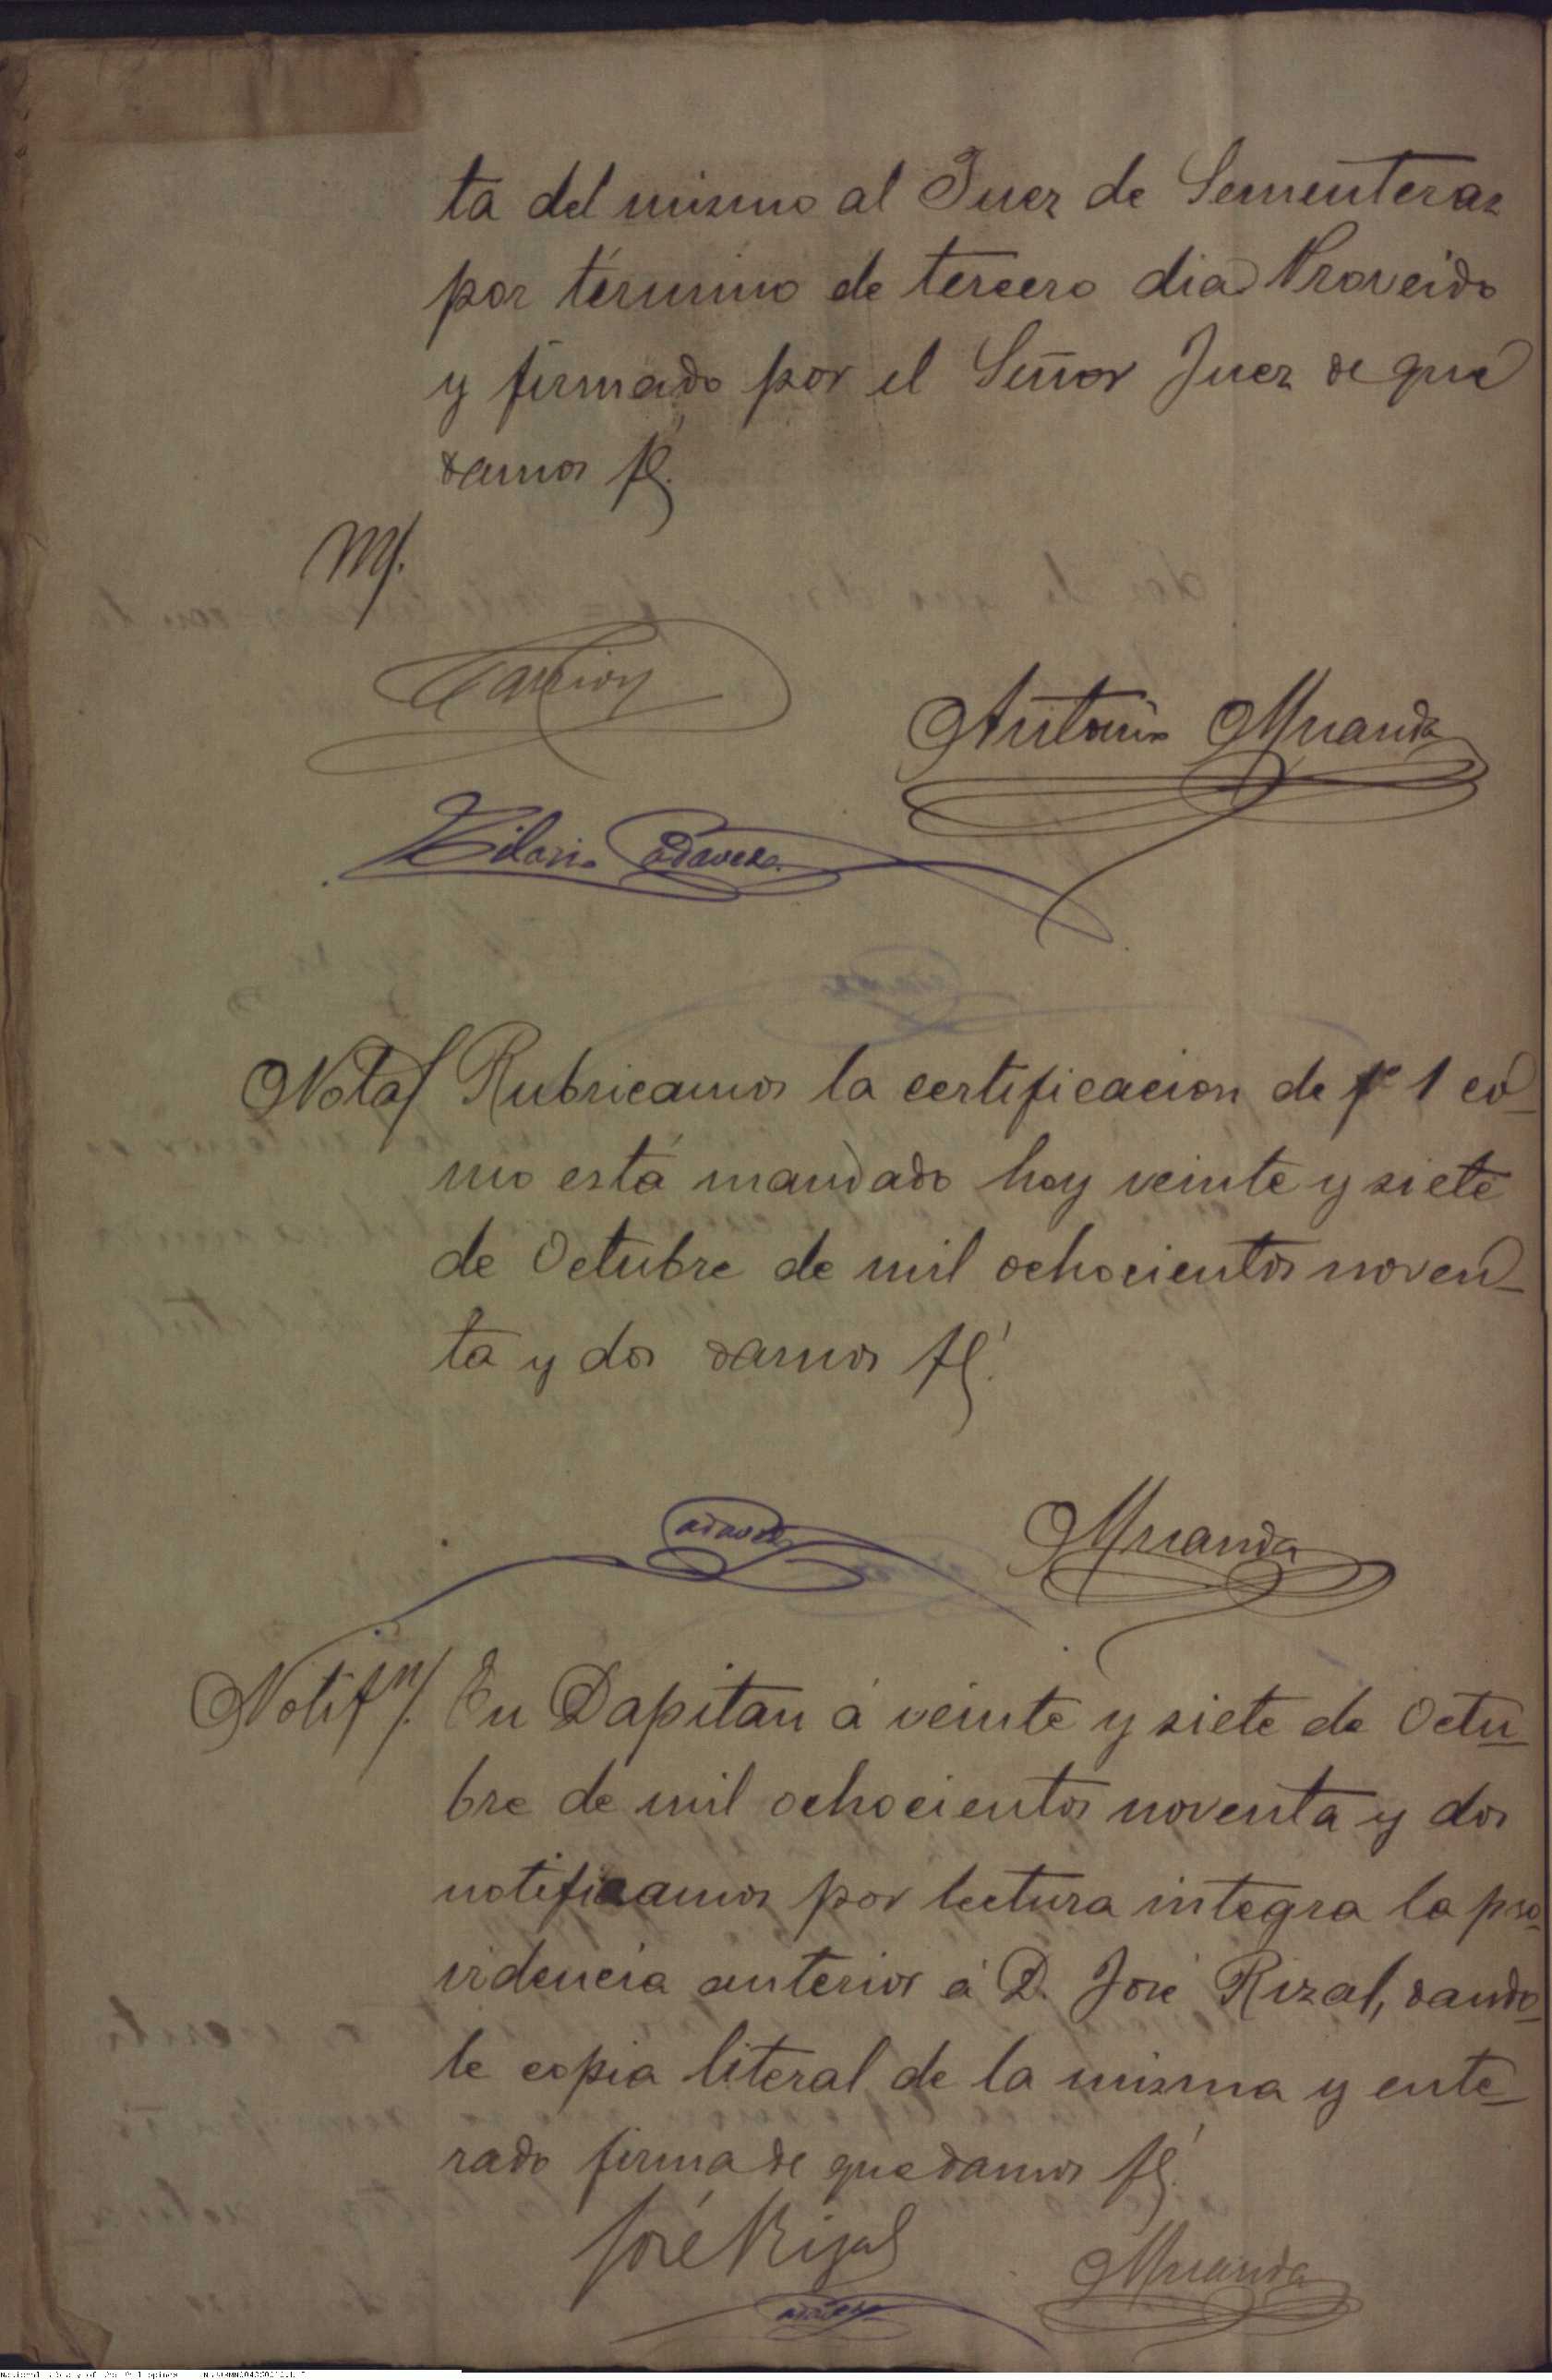 ta del mismo al Juez de Sementeras
por término de tercero dia Proveido
y firmado por el Señor Juez de que
damos fé.
M/.
Carrion
Antonio Miranda
Hilario Cadavera
Nota/ Rubricamos la certificacion de f° 1 co-
mo está mandado hoy veinte y siete
de Octubre de mil ochocientos noven-
ta y dos damos fé.
Cadavera
Miranda
Notifn/. En Dapitan á veinte y siete de Octu-
bre de mil ochocientos noventa y dos
notificamos por lectura integra la pro-
videncia anterior á D. José Rizal, dando-
le copia literal de la misma y ente-
rado firma de que damos fé.
José Rizal
Miranda
Cadavera